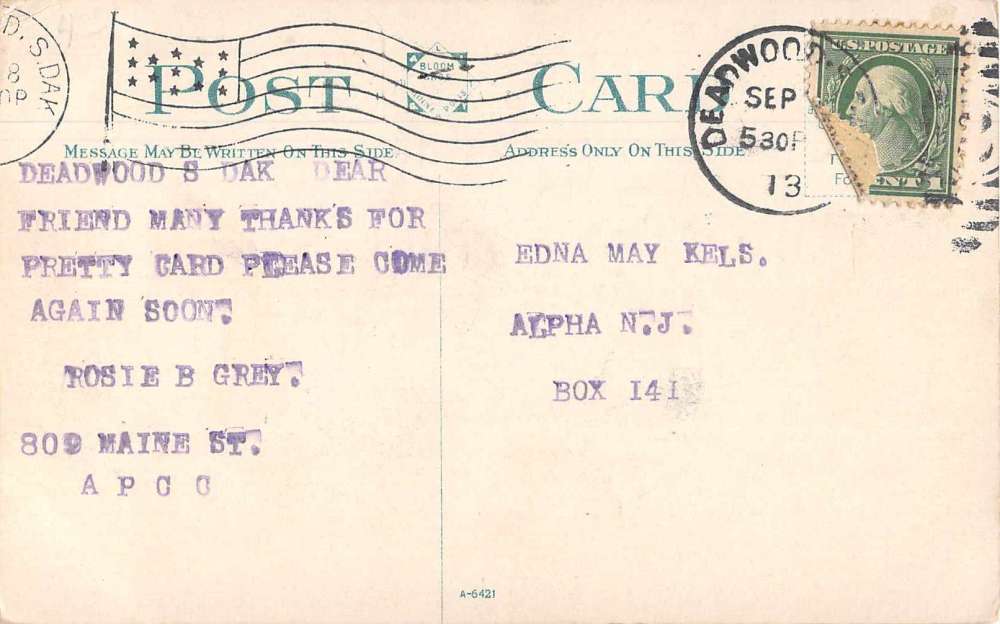 D. S. DAK
8
POST CARD
BLOOM
DEADWOOD
SEP
530P
13
U.S. POSTAGE
CENT 1
MESSAGE MAY BE WRITTEN ON THIS SIDE
ADDRESS ONLY ON THIS SIDE
DEADWOOD S DAK DEAR
FRIEND MANY THANKS FOR
PRETTY CARD PLEASE COME
AGAIN SOON.
ROSIE B GREY.
809 MAINE ST.
A P C C
EDNA MAY KELS.
ALPHA N.J.
BOX 141
A-6421